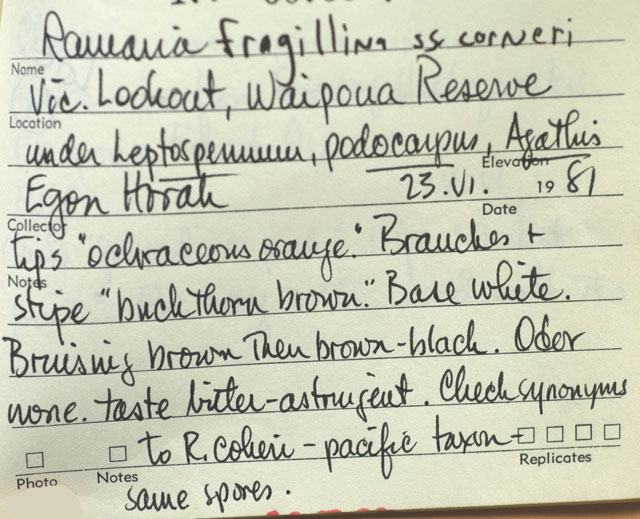 Ramaria fragillima ss corneri
Name
Vic. Lookout, Waipoua Reserve
Location
under Leptospermum, podocarpus, Agathis
Elevation
Egon Horak 23.VI. 1981
Collector Date
tips "ochraceous orange." Branches +
Notes
stipe "buckthorn brown." Base white.
Bruising brown then brown-black. Odor
none. taste bitter-astringent. Check synonyms
to R. - pacific taxon +
Photo Notes Replicates
same spores.